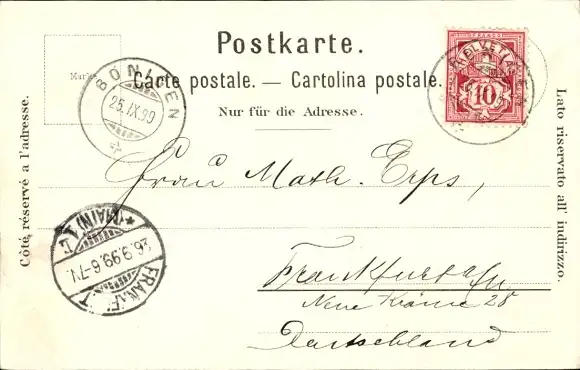 Postkarte.
Carte postale. — Cartolina postale.
Nur für die Adresse.
Côté réservé à l'adresse.
Lato riservato all' indirizzo.
BÖNIGEN
25.IX.99
HELVETIA
FRANCO
10
Frau Math. Erps,
Frankfurt a/M.
Neue Kräme 28
Deutschland
(MAIN) 1
26.9.99.6-7V.
FRANKF